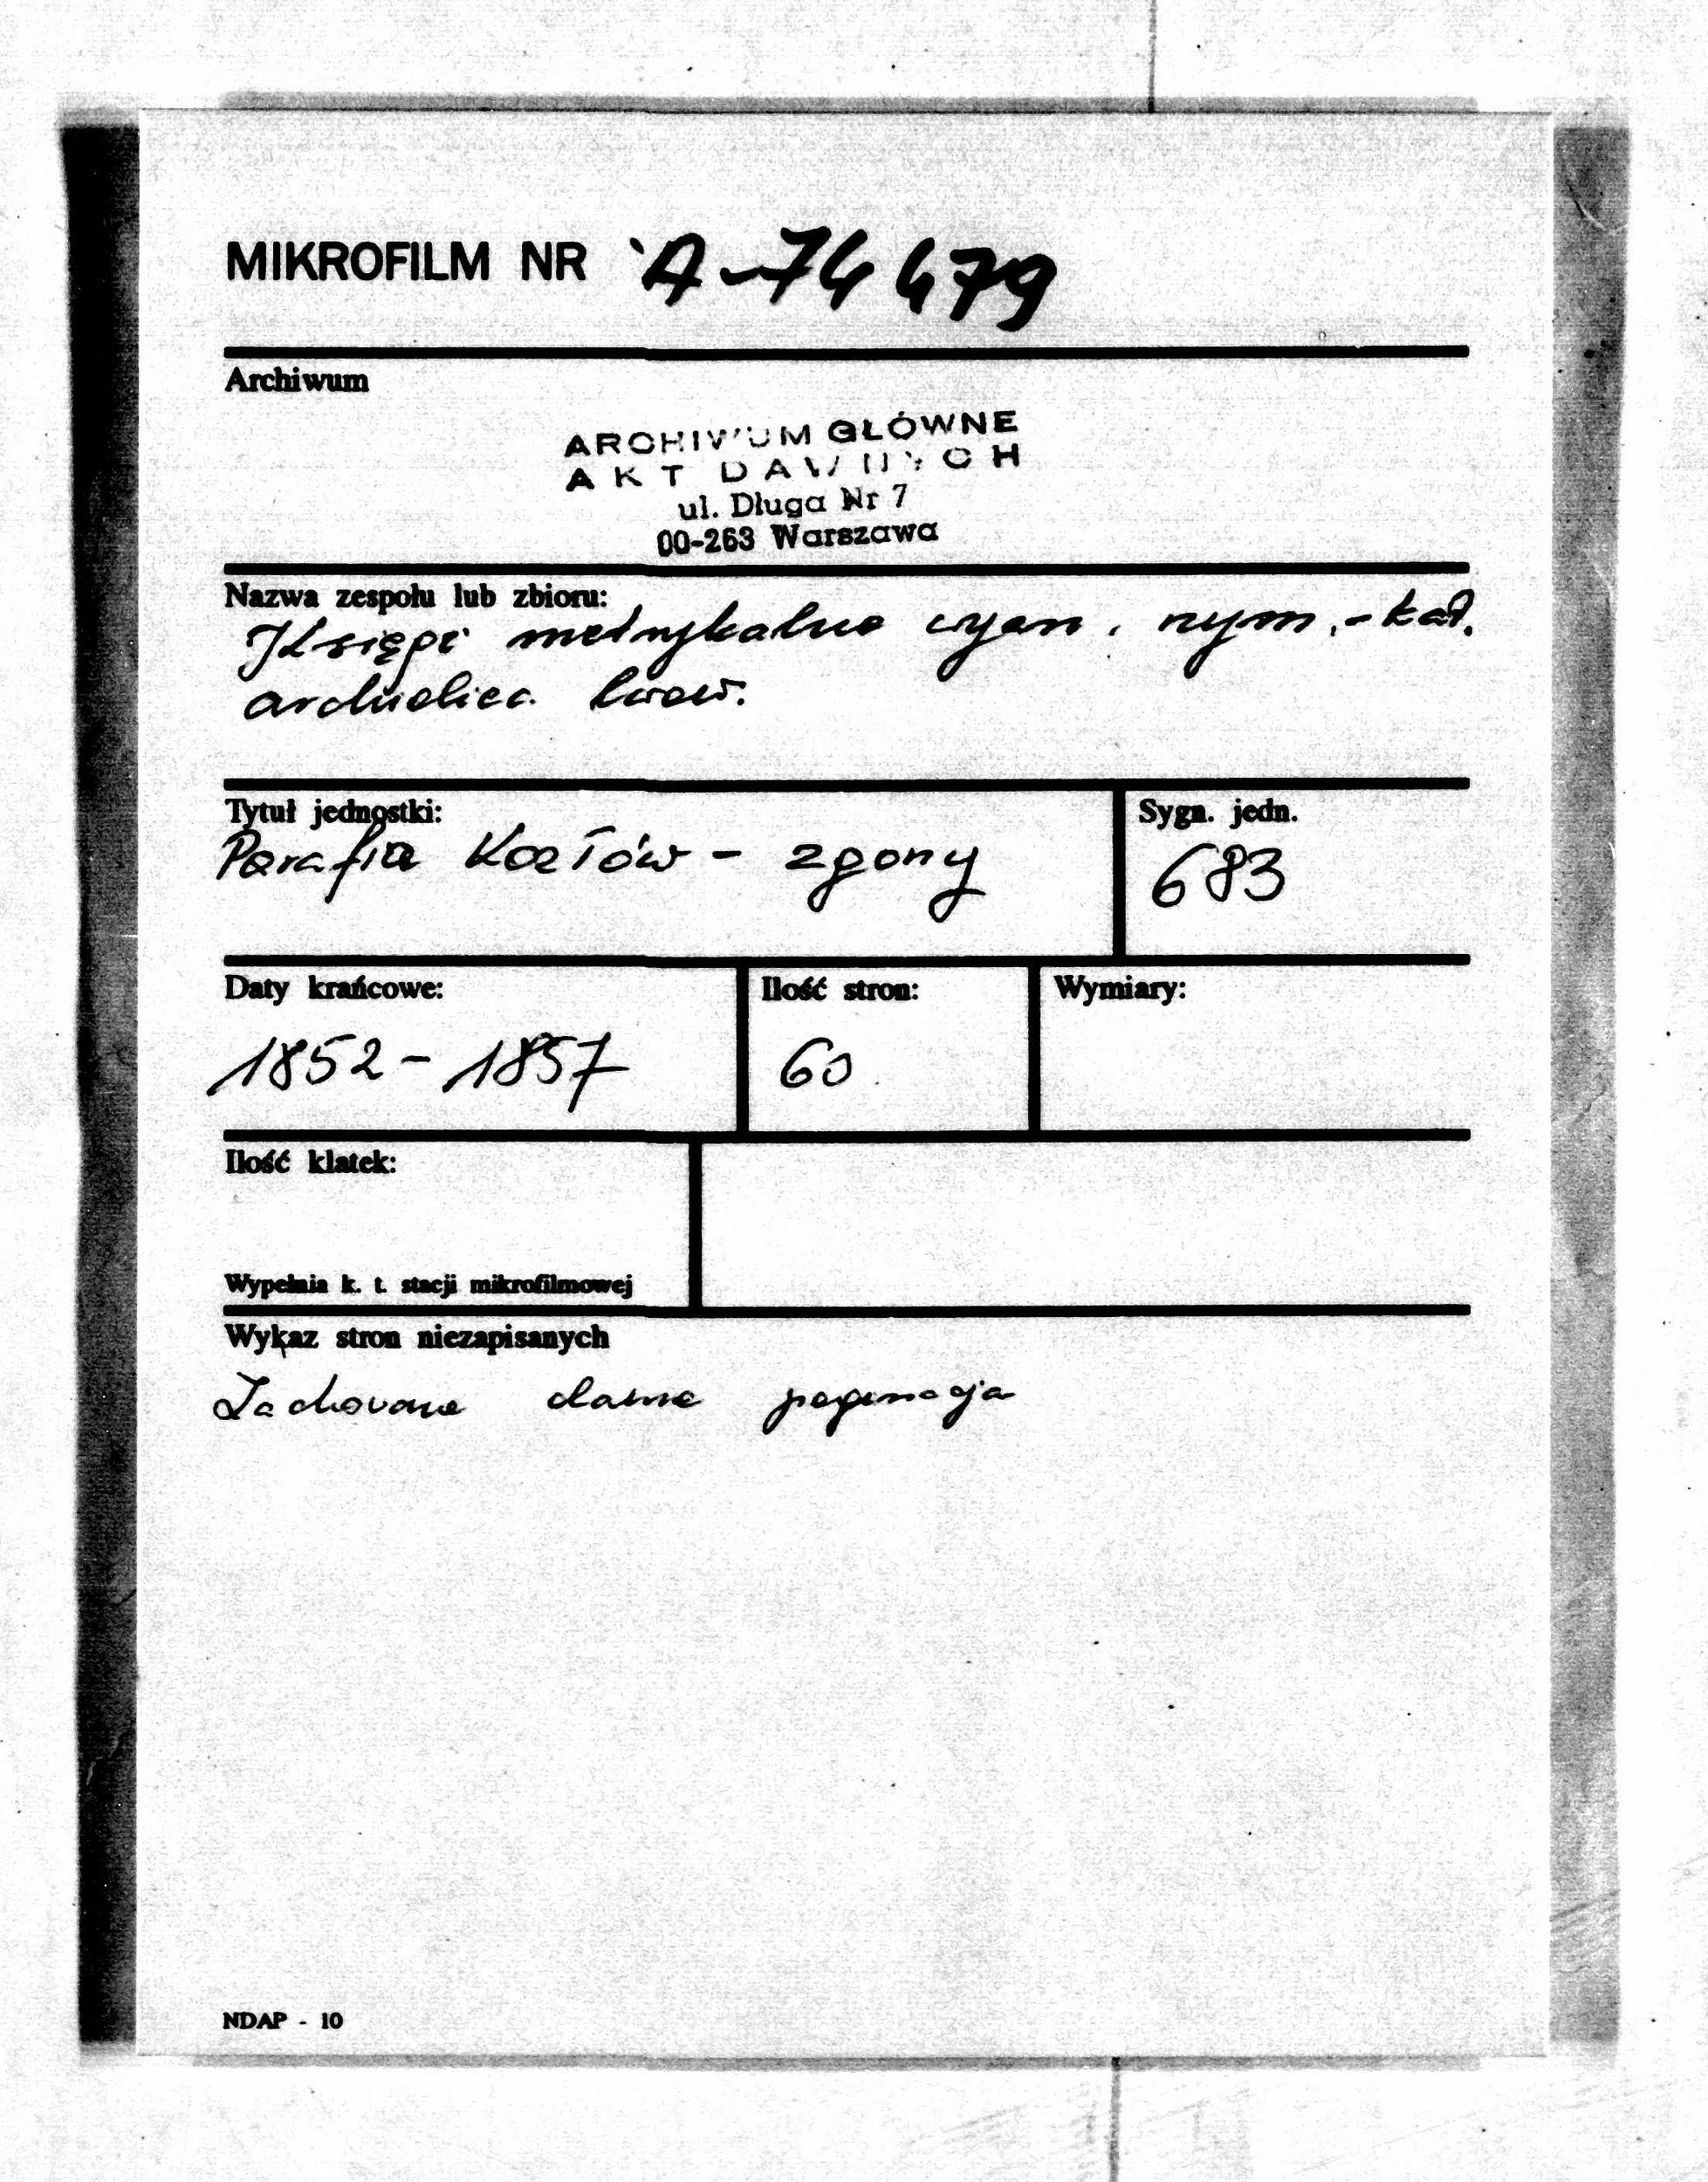 MIKROFILM NR A-74479
Archiwum
ARCHIWUM GŁÓWNE
AKT DAWNYCH
ul. Długa Nr 7
00-263 Warszawa
Nazwa zespołu lub zbioru:
Księgi metrykalne wyzn. rzym.-kat.
archidiec. lwow.
Tytuł jednostki:
Parafia Kozłów - zgony
Sygn. jedn.
683
Daty krańcowe:
1852 - 1857
Ilość stron:
60
Wymiary:
Ilość klatek:
Wypełnia k. t. stacji mikrofilmowej
Wykaz stron niezapisanych
Zachowana dawna paginacja
NDAP - 10